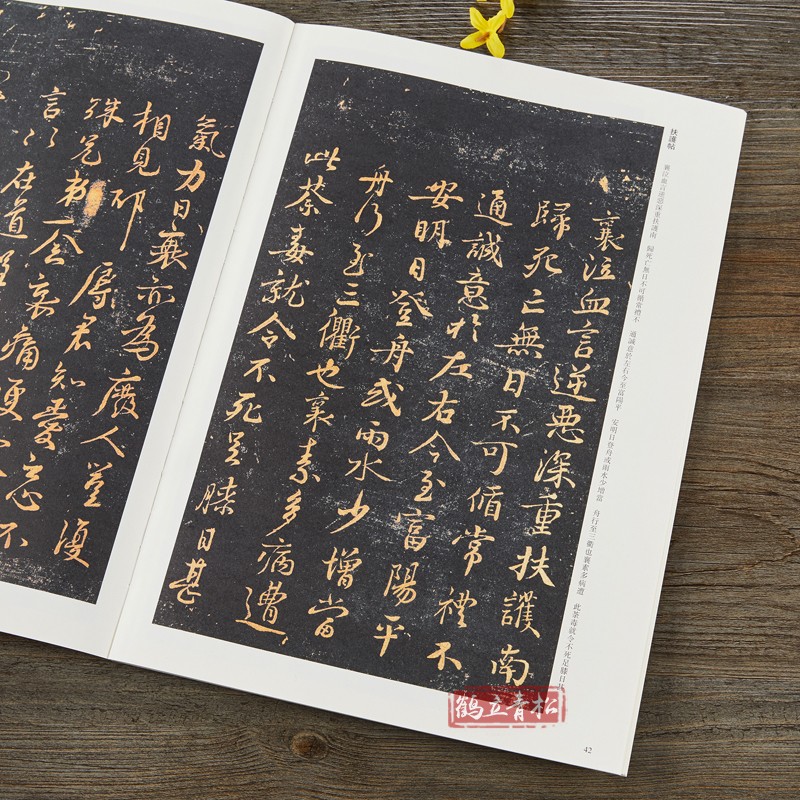 扶護帖 襄泣血言逆惡深重扶護南 歸死亡無日不可循常禮不 通誠意於左右今至富陽平 安明日登舟或雨水少增當 舟行至三衢也襄素多病遭 此荼毒就令不死足膝日
襄泣血言逆惡深重扶護南
歸死亡無日不可循常禮不
通誠意於左右今至富陽平
安明日登舟或雨水少增當
舟行至三衢也襄素多病遭
此荼毒就令不死足膝日甚
氣力日衰亦為廢人豈復
相見邪辱君知愛忘不
殊兄弟一念哀痛便
言之在道
42
鹤立青松